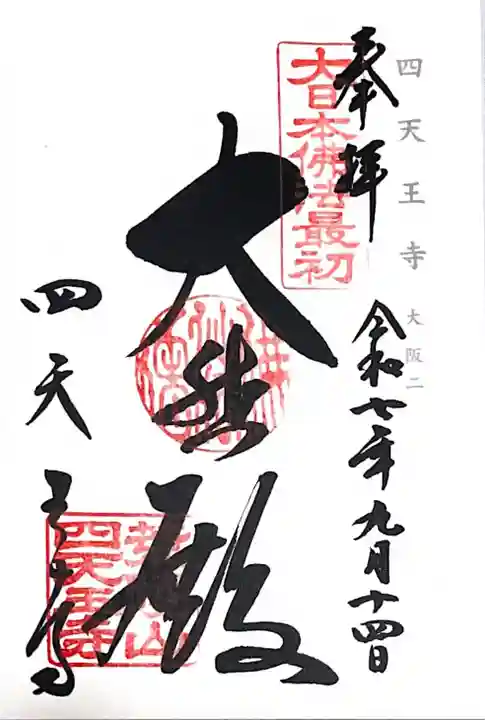 四天王寺 大阪二
奉拝 令和七年九月十四日
大日本佛法最初
大悲殿
四天王寺
荒陵山
四天王寺